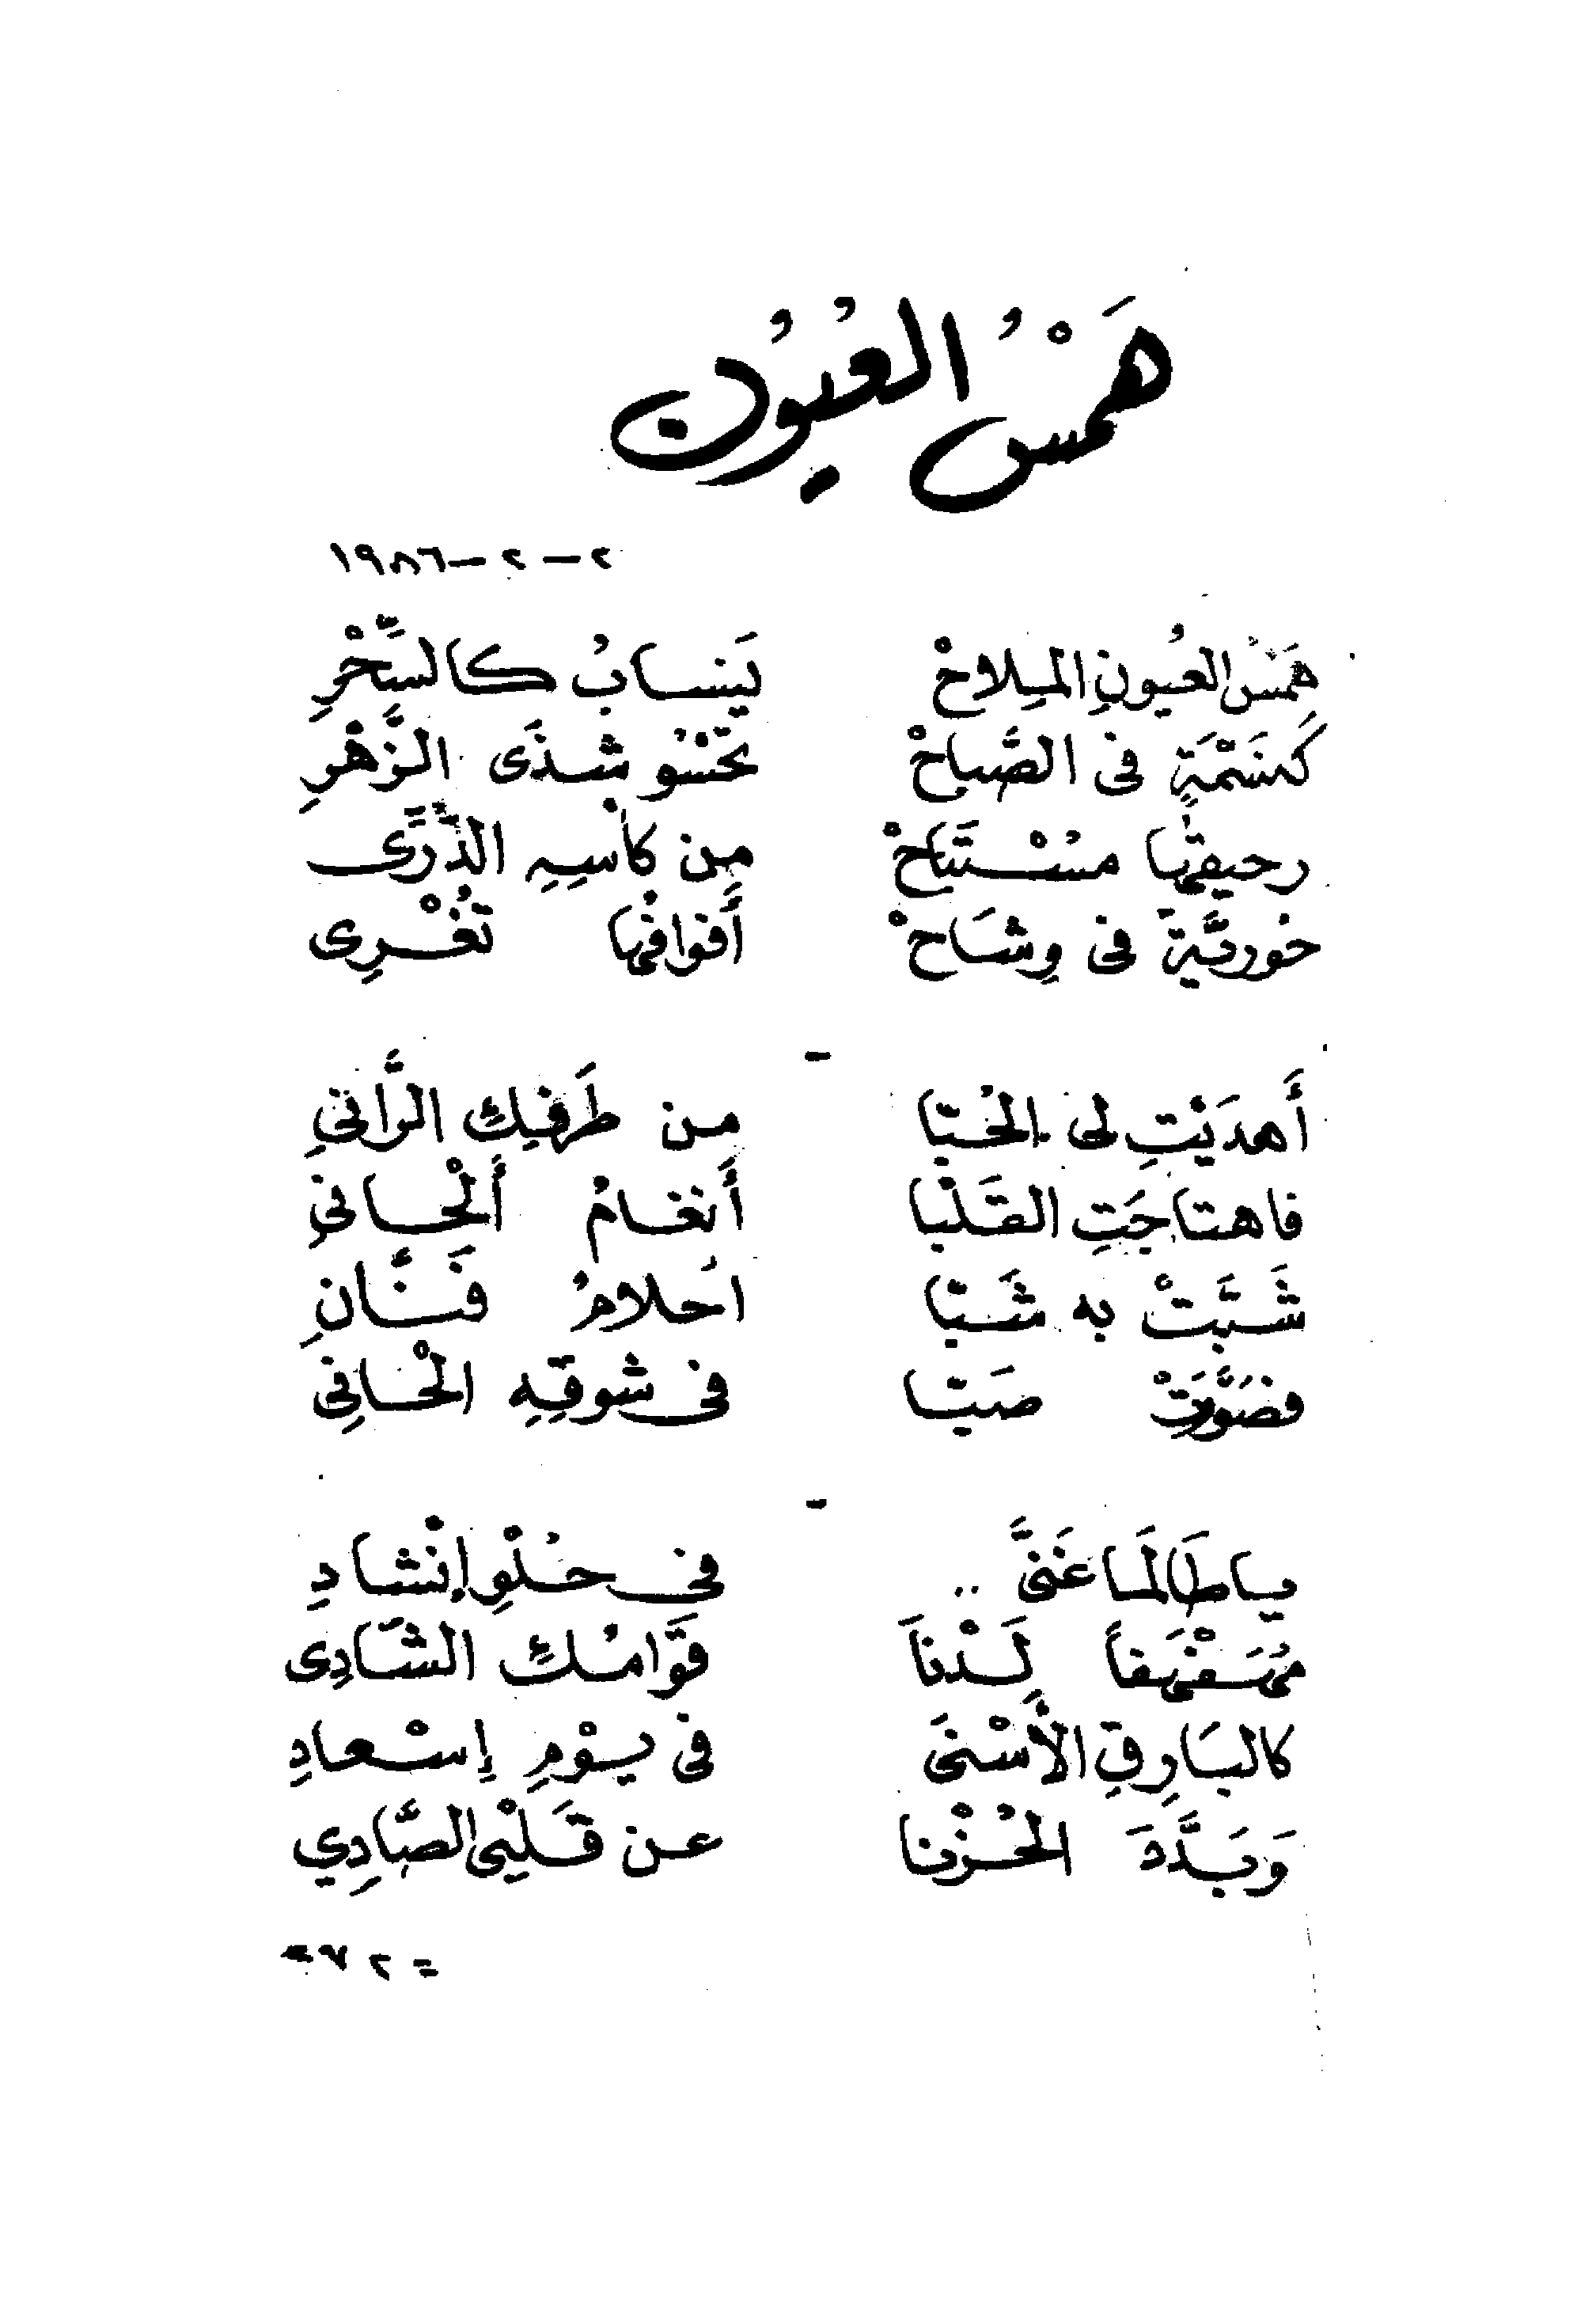 هَمْسُ العُيُون
٢-٢-١٩٨٦
هَمْسُ العُيونِ المِلاحْ يَنسابُ كالسِّحْرِ
كَنَسْمَةٍ في الصَّباحْ تحْسُو شذَى الزَّهْرِ
رحيقُها مسْتَباحْ مِن كأسِهِ الدُّرِّى
حُوريَّةٌ في وِشَاحْ أَفوافُها تُغْرِى
-
أَهدَيْتِ لى الحُبّا من طَرفِكِ الرَّانِي
فاهتاجَتِ القَلْبا أَنغامُ أَلْحانِي
شَبَّتْ به شَبّا احْلامُ فَنَّانِ
فصَوَّرَتْ صَبّا فى شوقِهِ الْحانِي
-
ياطَالَما غَنَّى .. فى حُلْوِ إنْشادِ
مُهَفْهَفاً لَدْناَ قَوَّامُكِ الشّادِى
كالبَارِقِ الأَسْنَى فى يوْمِ إسْعادِ
وَبَدَّدَ الحُزْنا عن قَلْبِي الصَّادِي